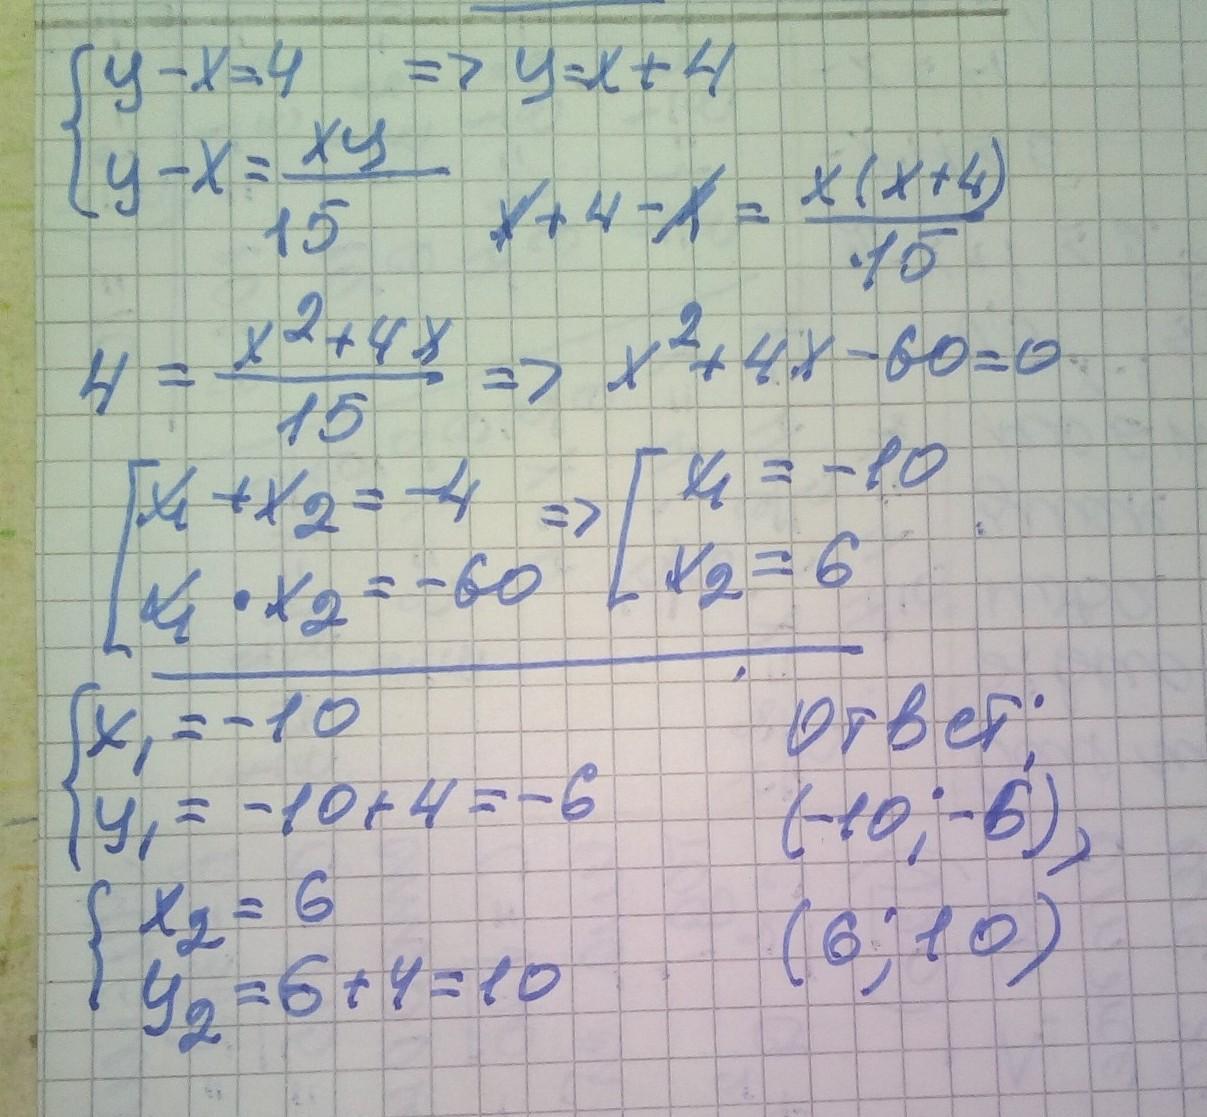 { y - x = 4 => y = x + 4
y - x = xy/15
x + 4 - x = x(x+4)/15
4 = x²+4x/15 => x² + 4x - 60 = 0
[ x₁ + x₂ = -4 => [ x₁ = -10
x₁ · x₂ = -60 x₂ = 6
{ x₁ = -10
y₁ = -10 + 4 = -6
{ x₂ = 6
y₂ = 6 + 4 = 10
Ответ:
(-10; -6),
(6; 10)